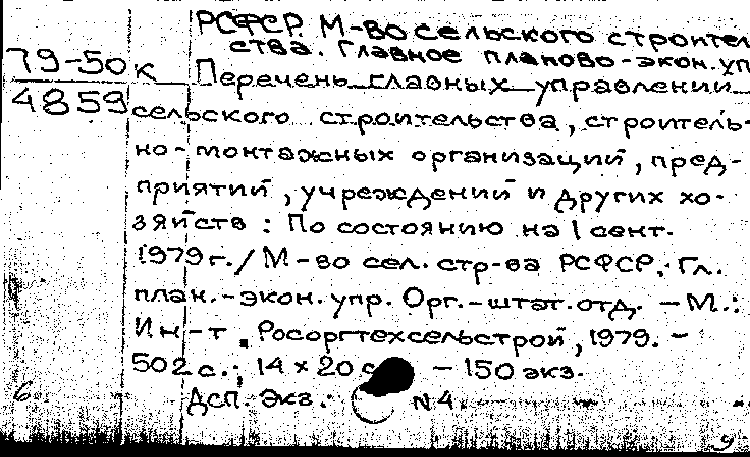 РСФСР. М-во сельского строитель
ства. Главное планово-экон. уп
79-50к
4859
Перечень главных управлений
сельского строительства, строитель-
но-монтажных организаций, пред-
приятий, учреждений и других хо-
зяйств: По состоянию на 1 сент.
1979 г. / М-во сел. стр-ва РСФСР, Гл.
план.-экон. упр. Орг.-штат. отд. - М.:
Ин-т "Росоргтехсельстрой", 1979. -
502 с.; 14 x 20 с - 150 экз.
6 ДСП. Экз. N 4
9